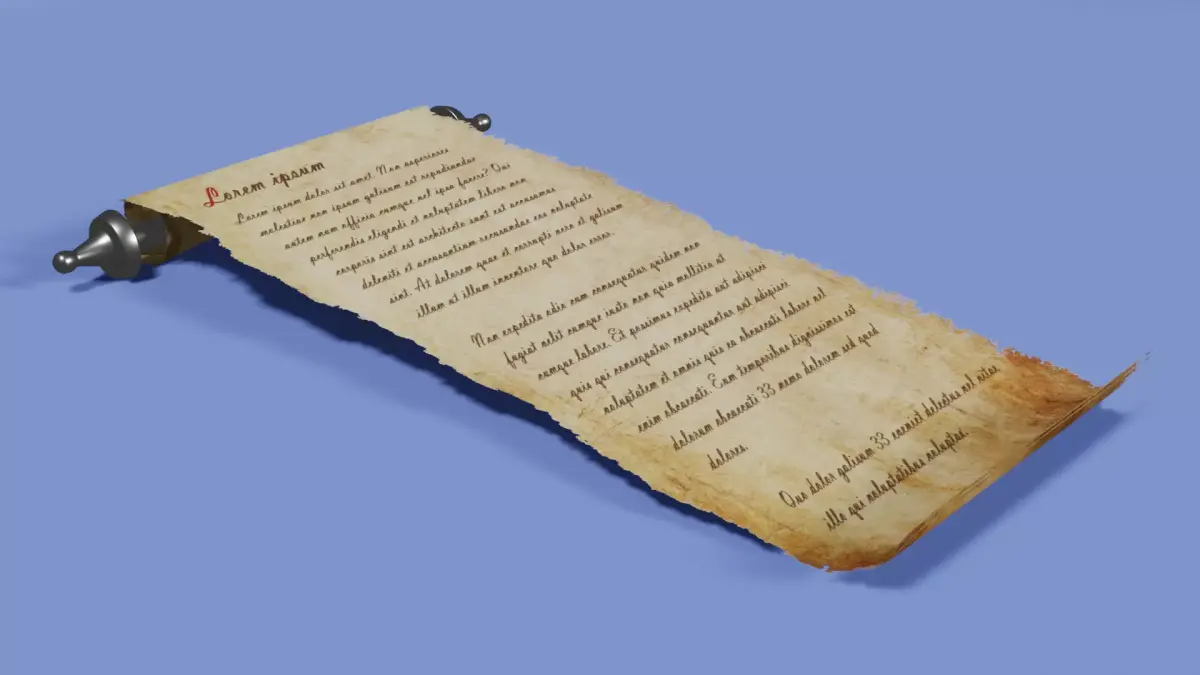 Lorem ipsum
Lorem ipsum dolor sit amet. Non asperiores
molestiae non ipsum galisum est repudiandae
autem nam officia cumque vel ipsa facere? Qui
perferendis eligendi et voluptatem libero non
corporis sint est architecto sunt est accusamus
deleniti et accusantium recusandae eos voluptate
sint. At dolorem quae et corrupti vero et galisum
illum ut illum inventore quo dolor esse.
Non expedita odio eum consequatur quidem non
fugiat velit cumque iusto non quia mollitia ut
cumque labore. Et possimus expedita aut adipisci
quis qui consequatur consequuntur aut adipisci
voluptatem et omnis quis ea obcaecati labore vel
enim obcaecati. Eum temporibus dignissimos est
dolorum obcaecati 33 nemo dolorem sed quod
dolores.
Quo dolor galisum 33 eveniet delectus vel vitae
illo qui voluptatibus voluptas.